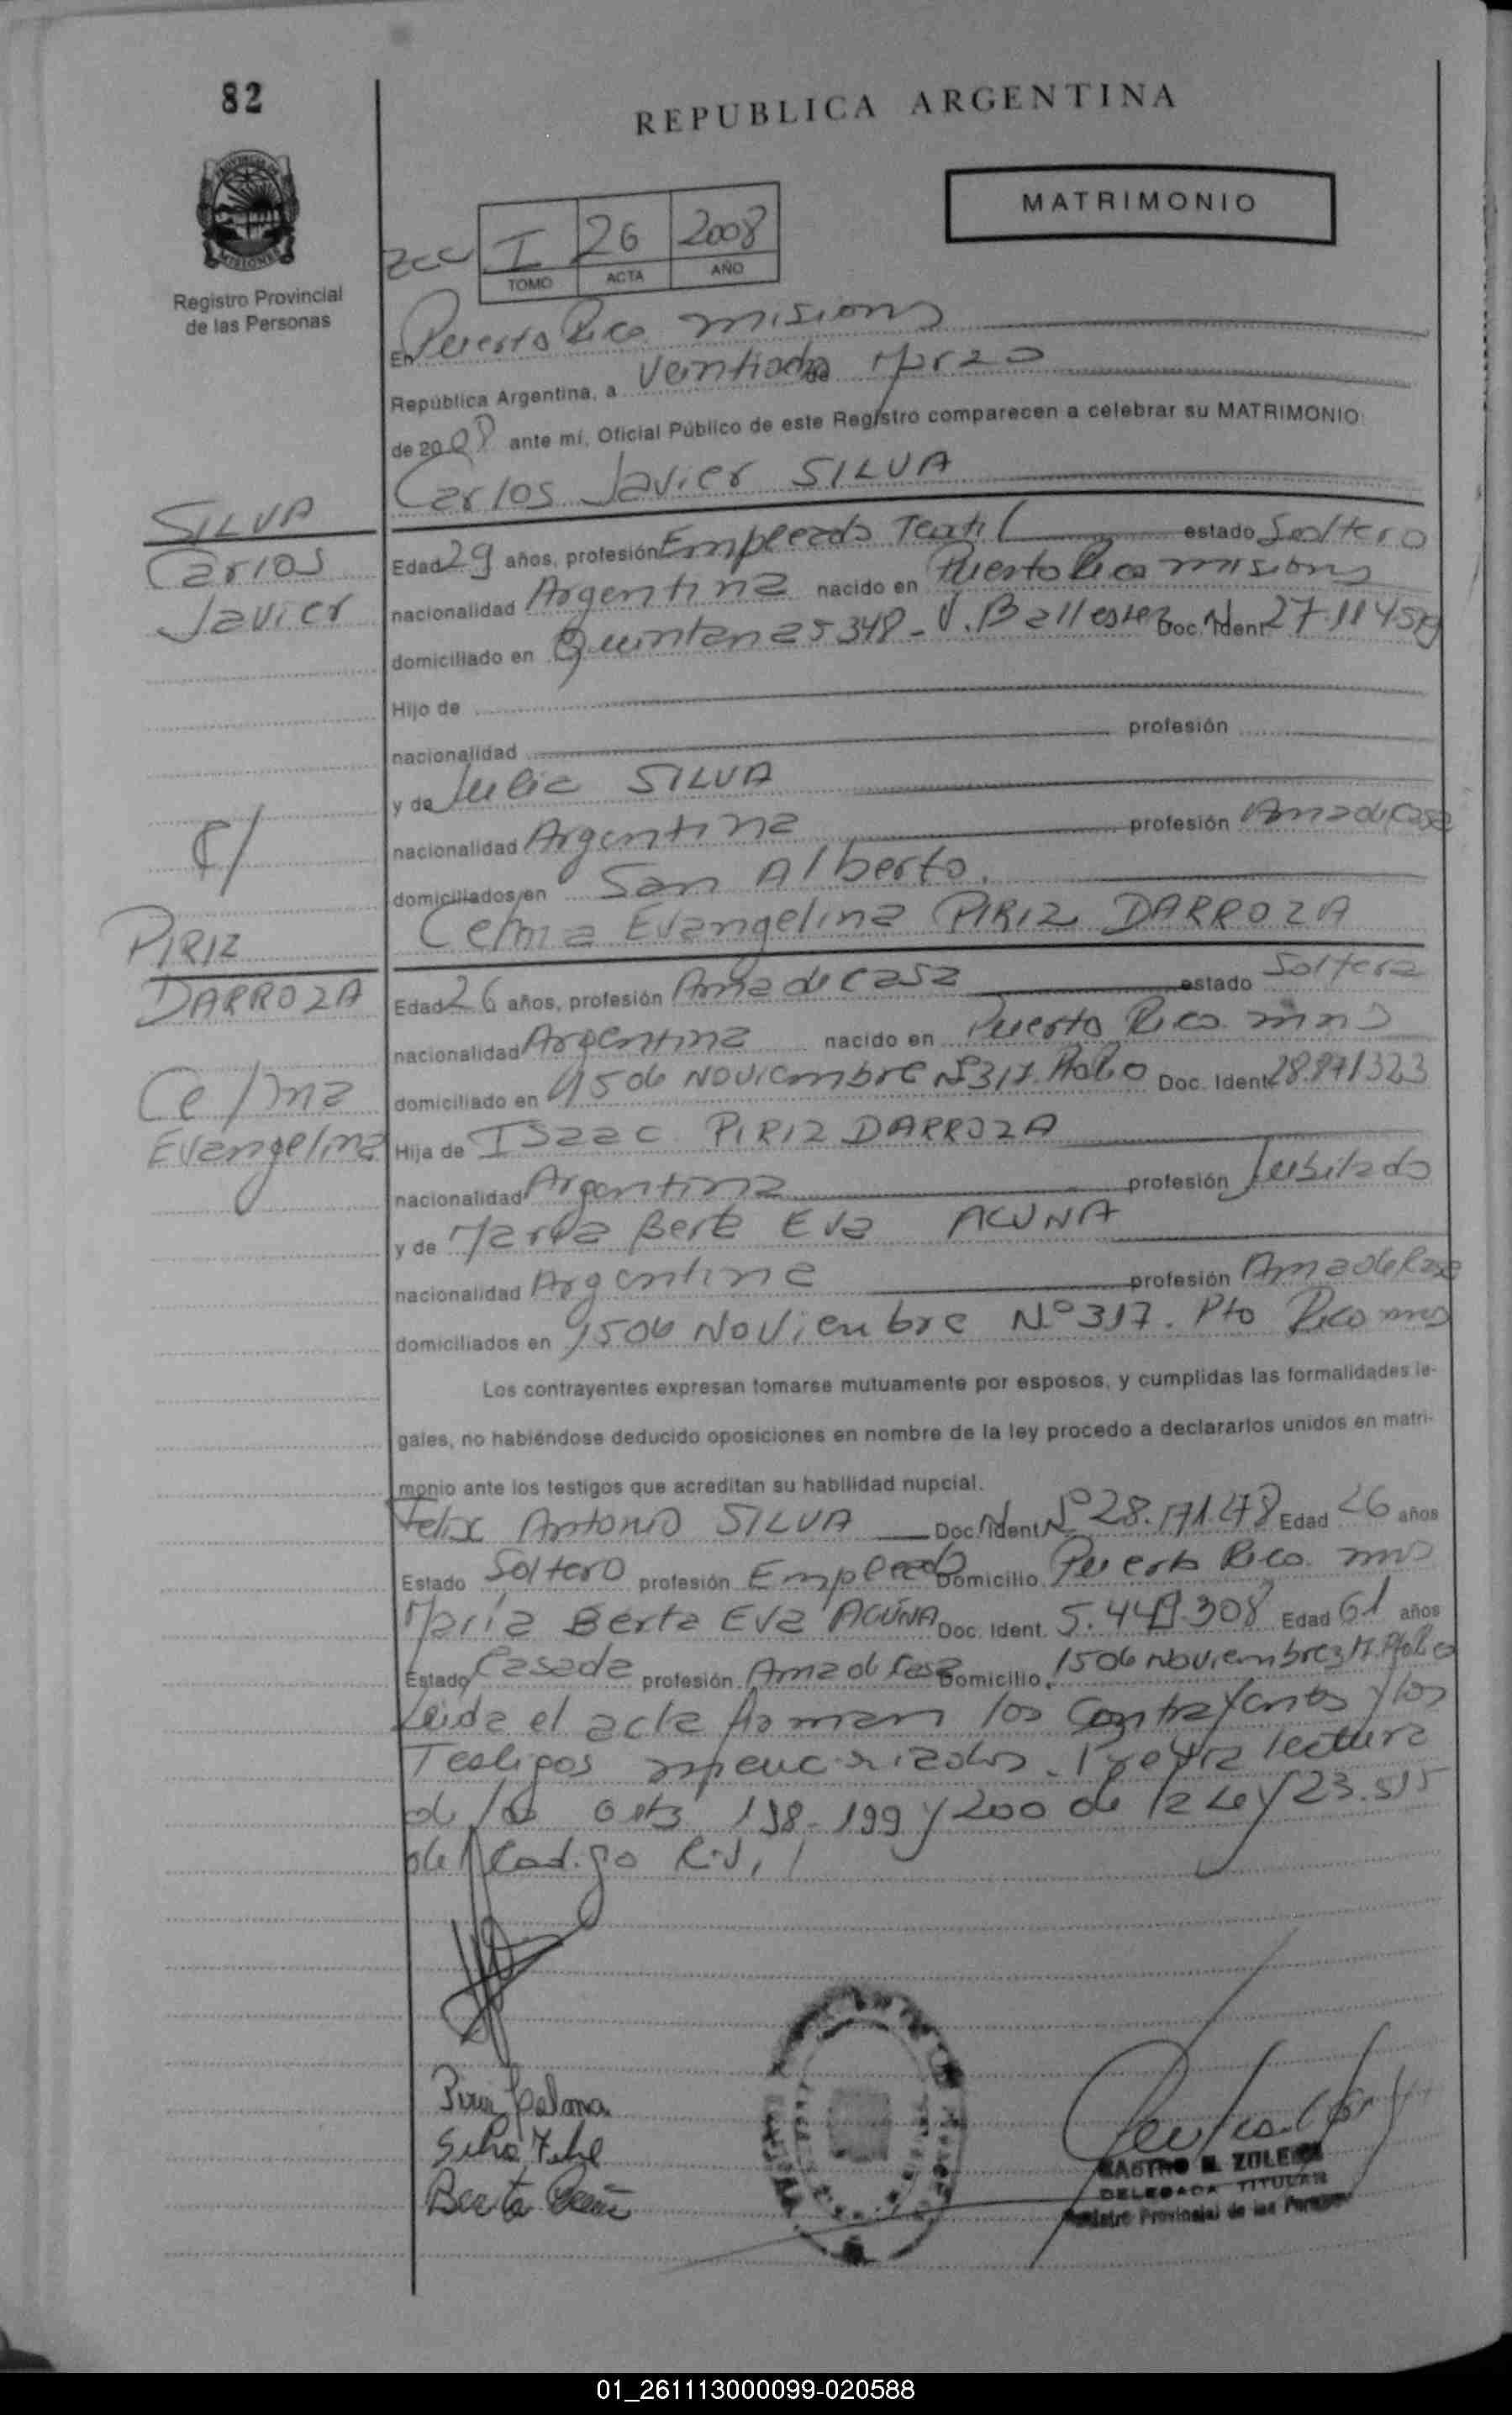 82
REPUBLICA ARGENTINA
MATRIMONIO
I 26 2008
TOMO ACTA AÑO
Registro Provincial
de las Personas
En Puerto Rico misions
República Argentina, a Veintiocho de Marzo
de 2008 ante mí, Oficial Público de este Registro comparecen a celebrar su MATRIMONIO
Carlos Javier SILVA
SILVA
Carlos
Javier
Edad 29 años, profesión Empleado Textil estado Soltero
nacionalidad Argentina nacido en Puerto Rico misions
domiciliado en Quintanas 348 - V. Ballester Doc. Ident
Hijo de
nacionalidad profesión
y de Julia SILVA
nacionalidad Argentina profesión Ama de Casa
domiciliados en San Alberto.
c/
Celma Evangelina PIRIZ DARROZA
PIRIZ
DARROZA
Celma
Evangelina
Edad 26 años, profesión Ama de casa estado Soltera
nacionalidad Argentina nacido en Puerto Rico mns
domiciliado en 15 de Noviembre Nº 317. Pto Rico Doc. Ident 28.871323
Hija de Isaac PIRIZ DARROZA
nacionalidad Argentina profesión Jubilado
y de María Berta Eva ACUNA
nacionalidad Argentina profesión Ama de Casa
domiciliados en 15 de Noviembre Nº 317. Pto Rico mns
Los contrayentes expresan tomarse mutuamente por esposos, y cumplidas las formalidades le-
gales, no habiéndose deducido oposiciones en nombre de la ley procedo a declararlos unidos en matri-
monio ante los testigos que acreditan su habilidad nupcial.
Felix Antonio SILVA Doc. Ident Nº 28.171.478 Edad 26 años
Estado Soltero profesión Empleado Domicilio Puerto Rico mns
María Berta Eva ACUÑA Doc. Ident. 5.449.308 Edad 61 años
Estado Casada profesión Ama de Casa Domicilio 15 de Noviembre 317. Pto Rico
Leida el acta firman los Contrayentes y los
Testigos mencionados. Previa lectura
de los arts 198-199 y 200 de la Ley 23.515
del Codigo Civil
Piriz Celma
Silva Felix
Berta
CASTRO M. ZULEMA
DELEGADA TITULAR
Registro Provincial de las Personas
01_261113000099-020588